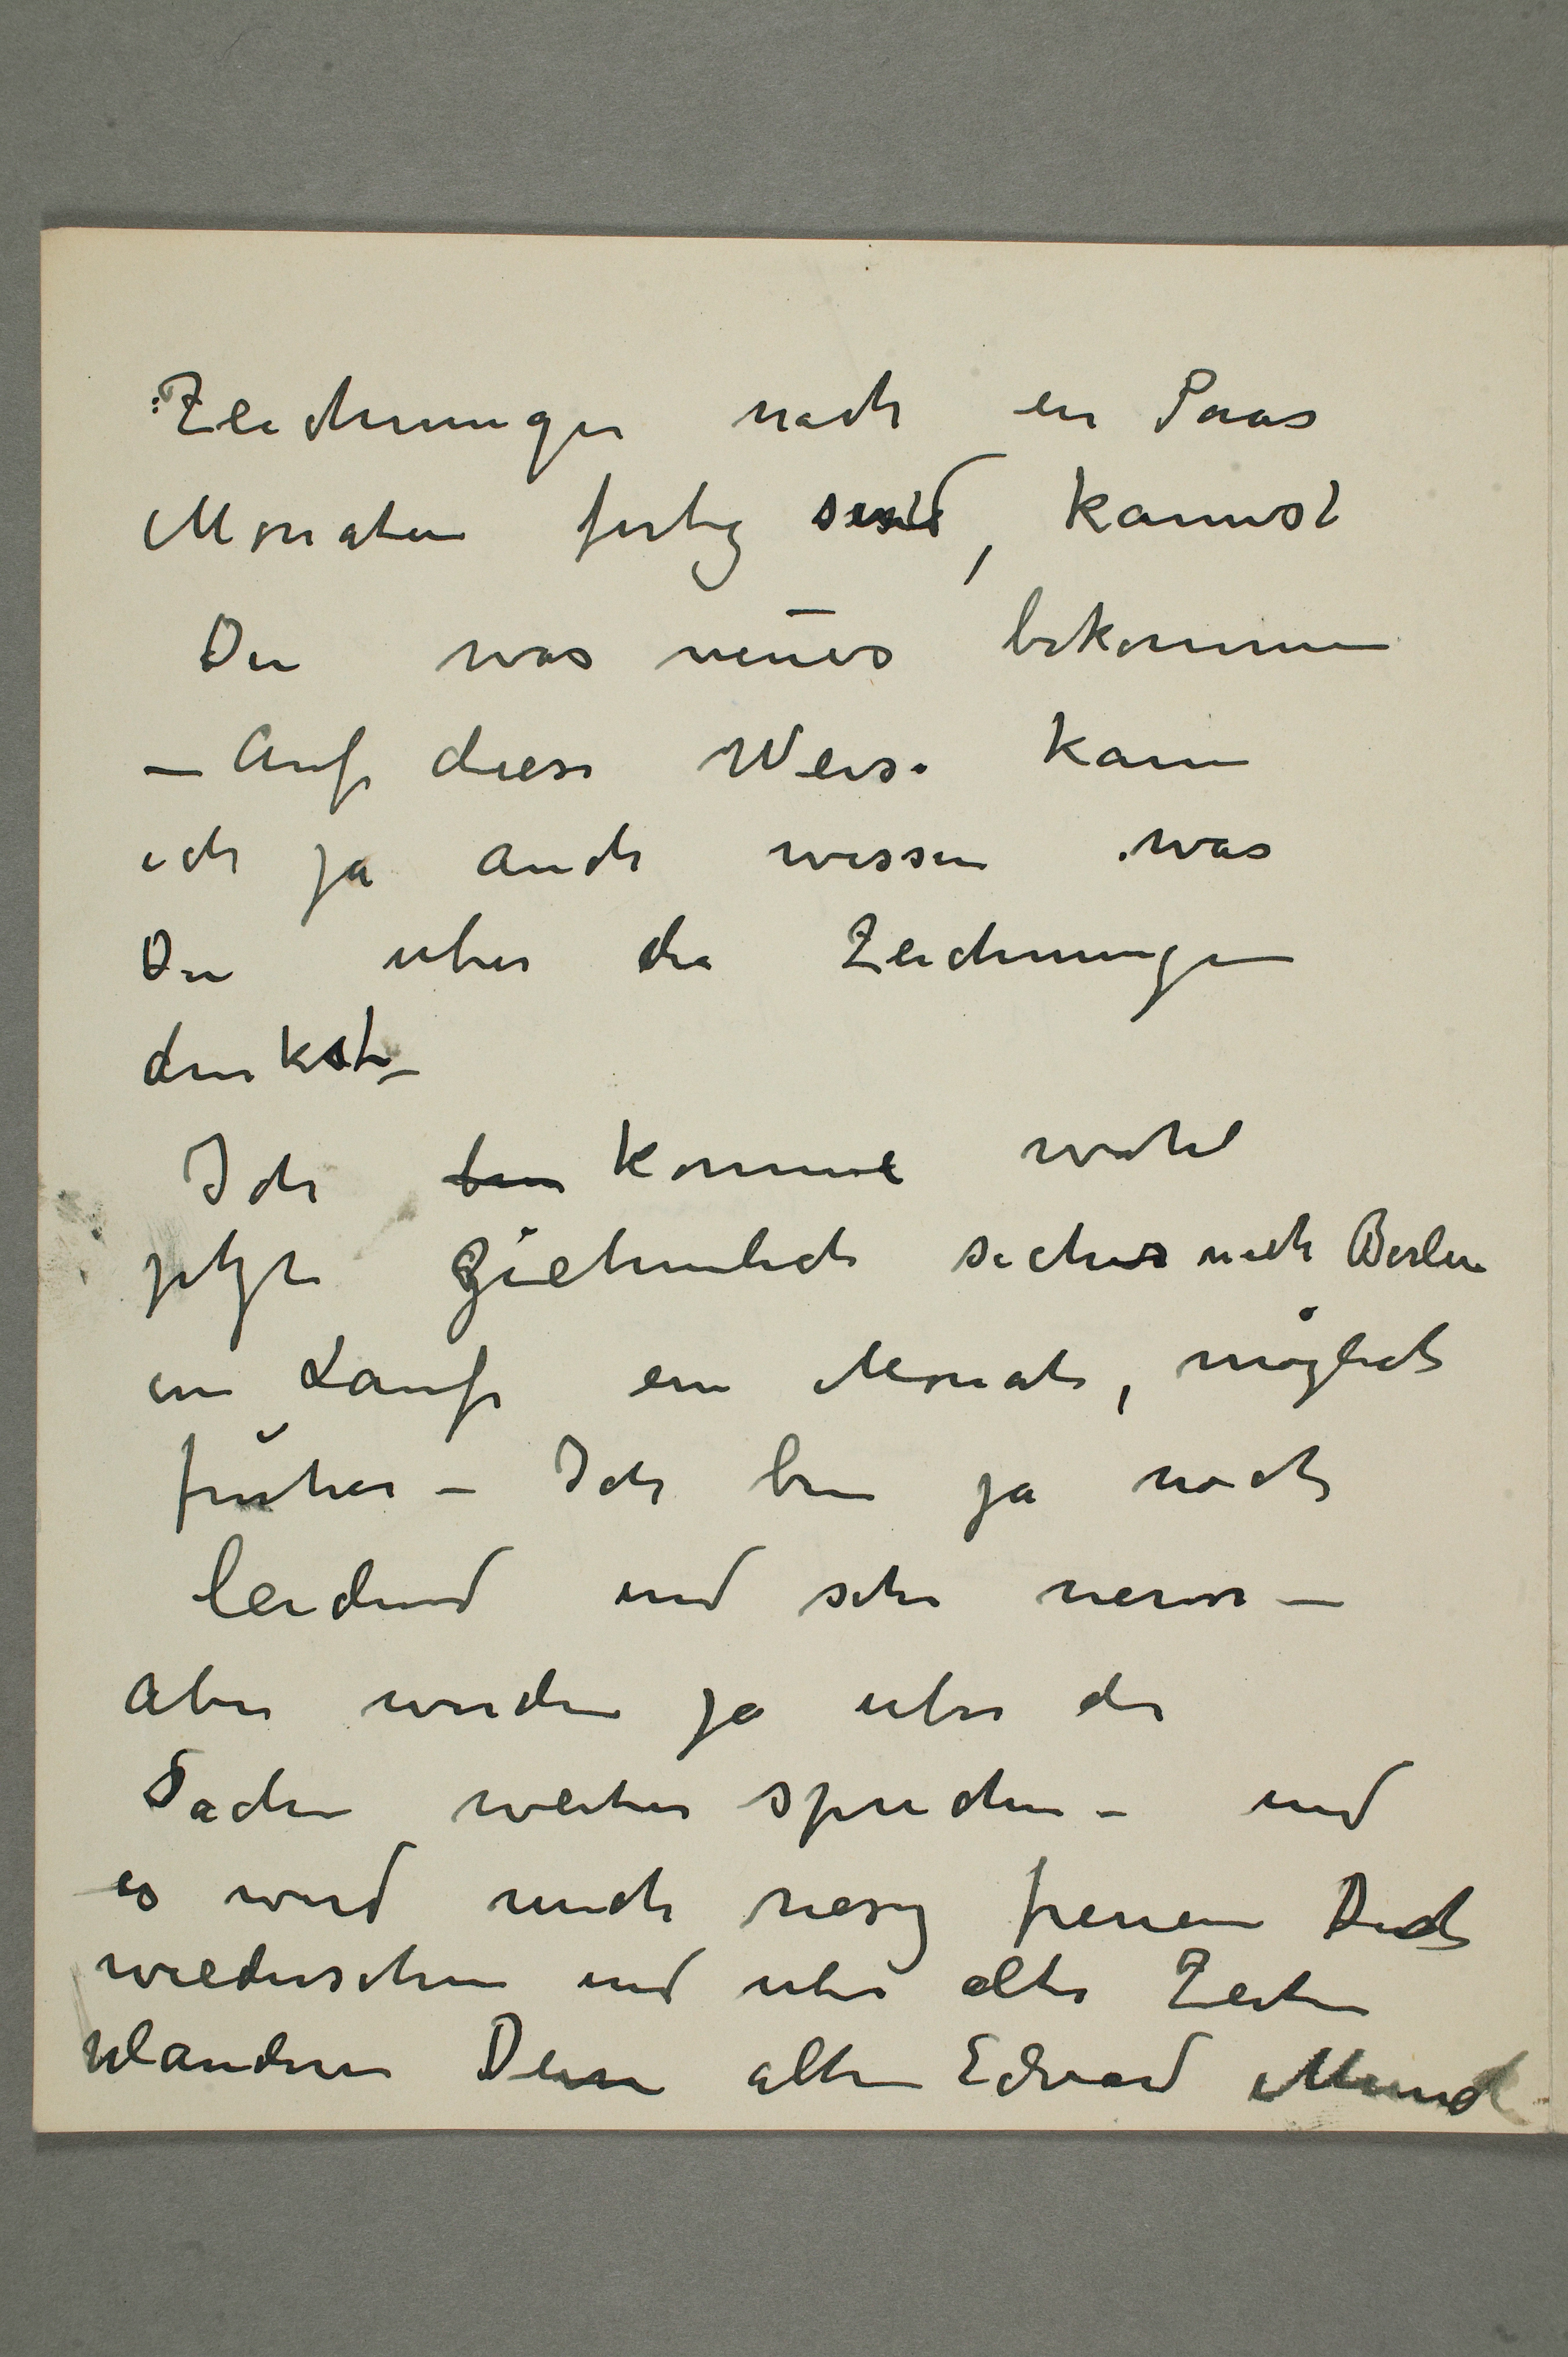 Zeichnungen nach ein Paar
Monaten fertig sind, kannst
Du was neues bekommen
– Auf diese Weise kann
ich ja auch wissen was
Du uber die Zeichnungen
denkst –
Ich bin komme wohl
jetzt ziehmlich sicher nach Berlin
im Laufe ein Monat, möglich
früher – Ich bin ja noch
leidend und sehr nervos –
aber werden ja uber die
Sachen weiter sprechen – und
es wird mich riesig freuen Dich
wiedersehen und uber alte Zeiten
plaudern Dein alten Edvard Munch